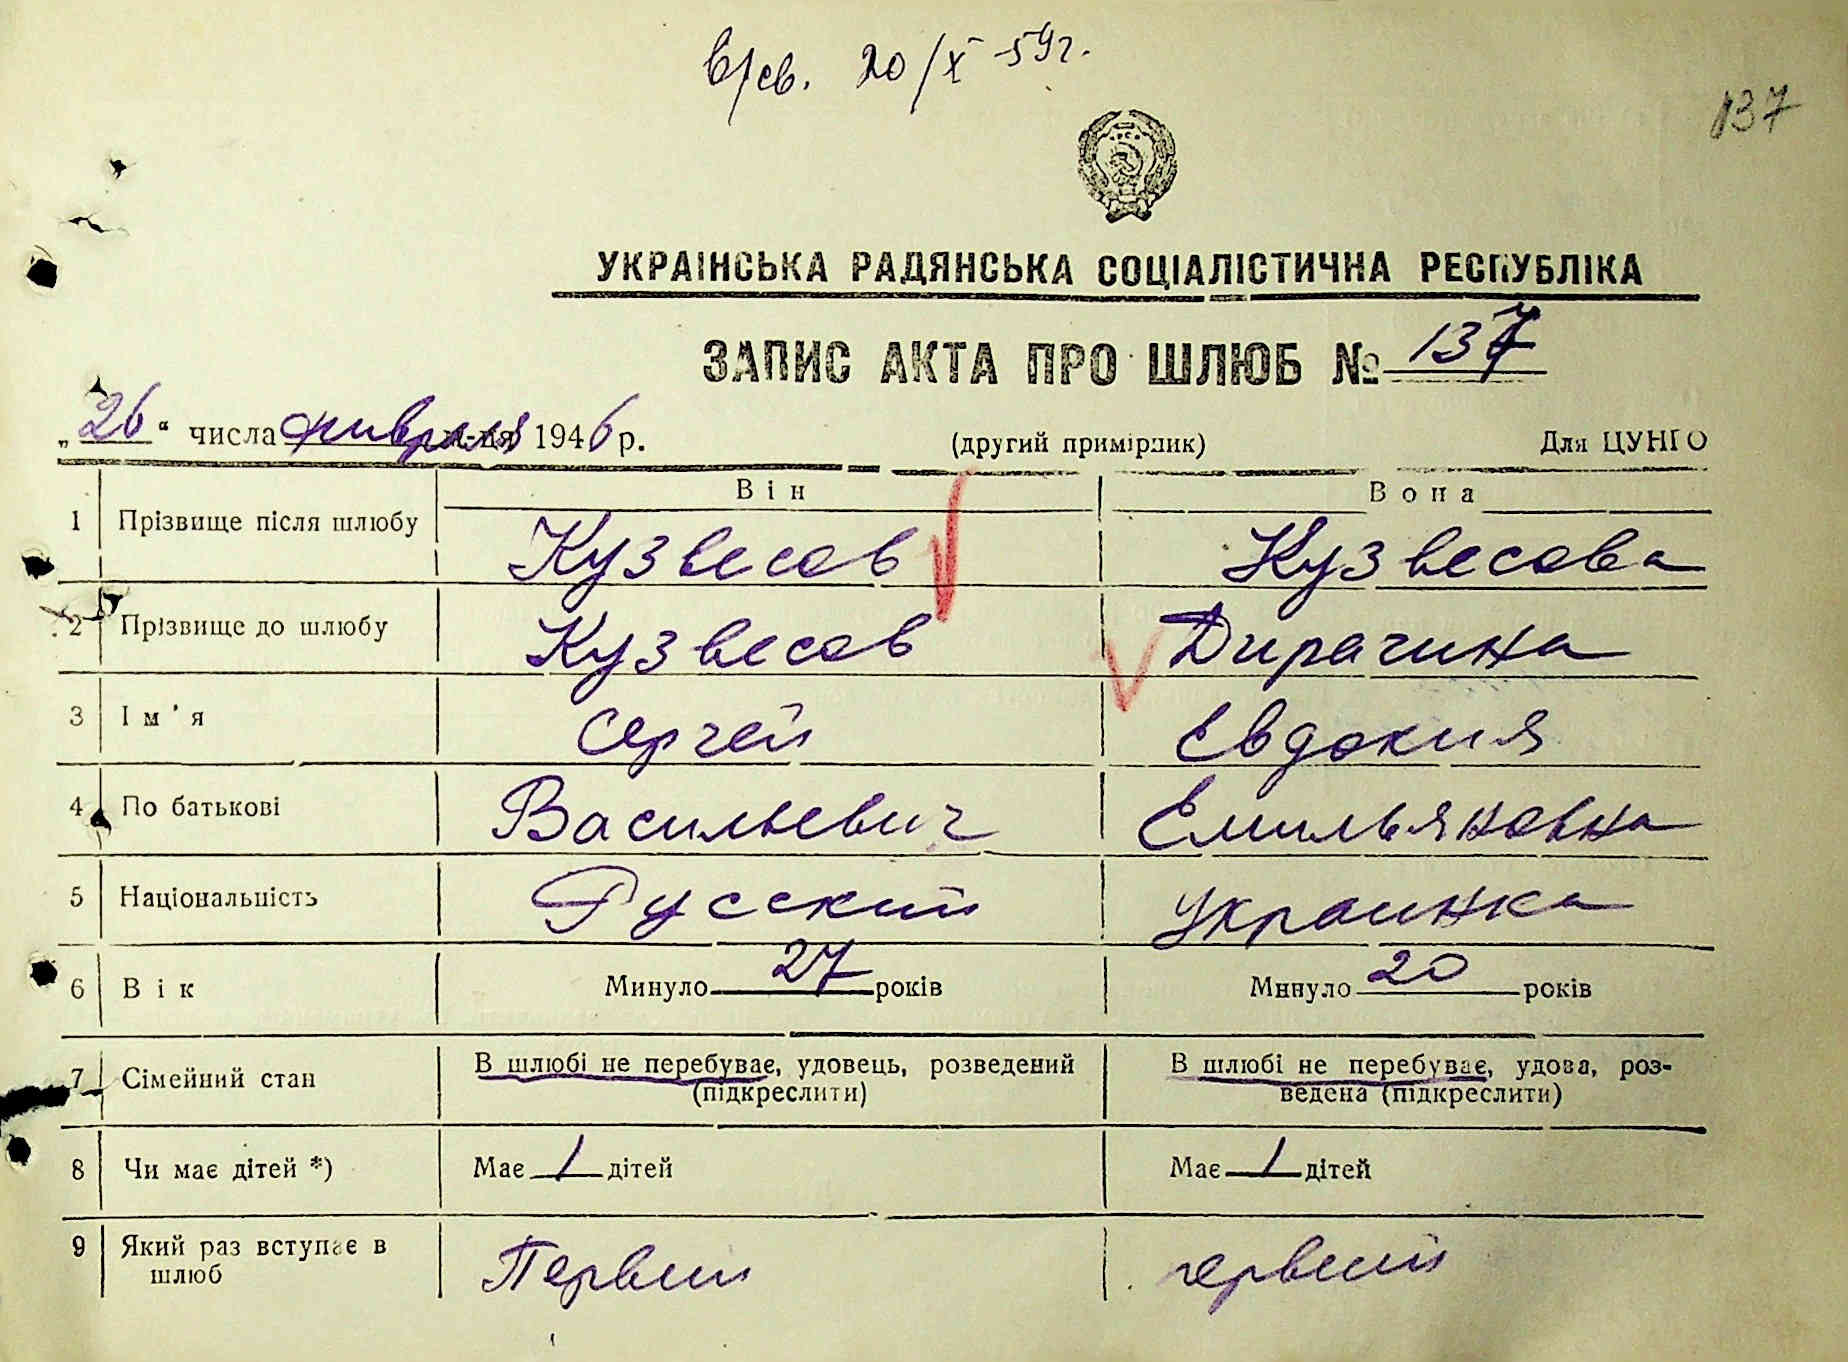 в/св. 20/X-59г.
137
УКРАЇНСЬКА РАДЯНСЬКА СОЦІАЛІСТИЧНА РЕСПУБЛІКА
ЗАПИС АКТА ПРО ШЛЮБ № 137
„26“ числа февраля м-ця 1946 р. (другий примірник) Для ЦУНГО
Він Вона
1 Прізвище після шлюбу Кузвесов Кузвесова
2 Прізвище до шлюбу Кузвесов Дирачина
3 Ім'я Сергей Евдокия
4 По батькові Васильевич Емильяновна
5 Національність Русский Украинка
6 Вік Минуло 27 років Минуло 20 років
7 Сімейний стан В шлюбі не перебуває, удовець, розведений В шлюбі не перебуває, удова, роз-
(підкреслити) ведена (підкреслити)
8 Чи має дітей *) Має 1 дітей Має 1 дітей
9 Який раз вступає в Первый первый
шлюб